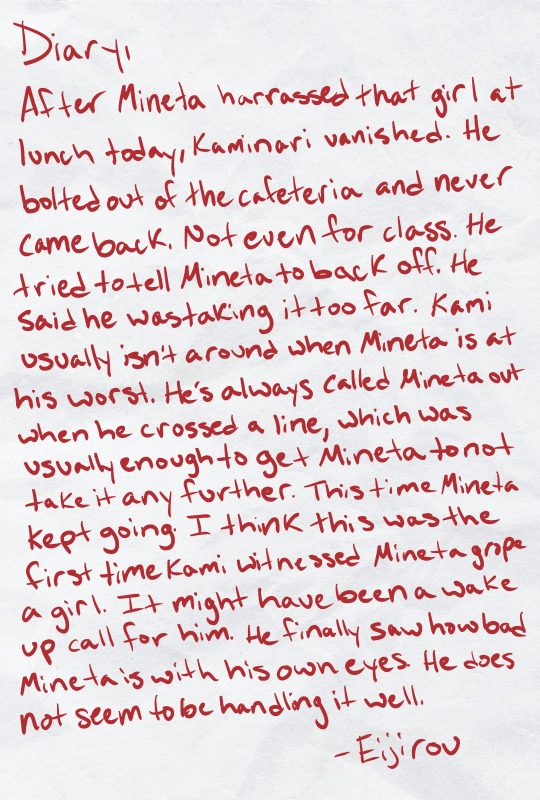 Diary,
After Mineta harrassed that girl at
lunch today, Kaminari vanished. He
bolted out of the cafeteria and never
came back. Not even for class. He
tried to tell Mineta to back off. He
said he was taking it too far. Kami
usually isn't around when Mineta is at
his worst. He's always called Mineta out
when he crossed a line, which was
usually enough to get Mineta to not
take it any further. This time Mineta
kept going. I think this was the
first time Kami witnessed Mineta grope
a girl. It might have been a wake
up call for him. He finally saw how bad
Mineta is with his own eyes. He does
not seem to be handling it well.
-Eijirou